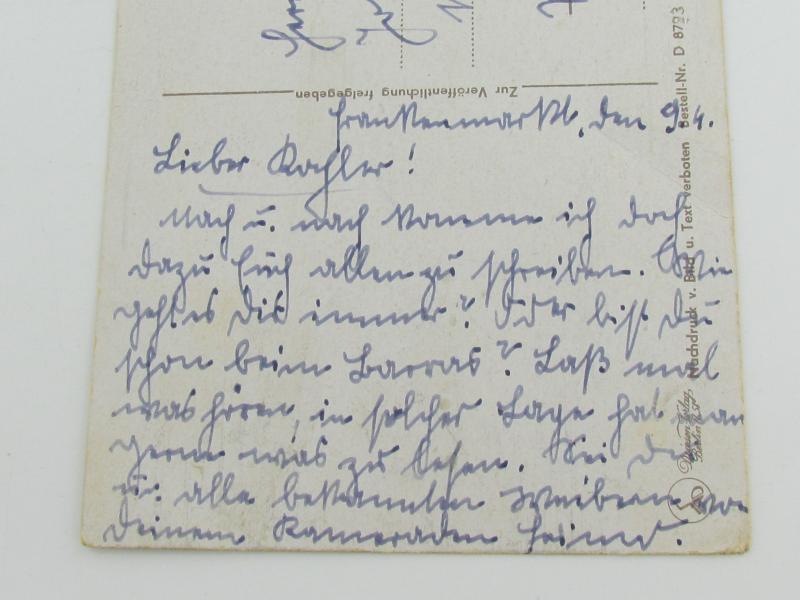 Zur Veröffentlichung freigegeben
Frankenmarkt, den 9.4.
Lieber Kochler!
Nach u. nach komme ich doch
dazu Euch allen zu schreiben. Wie
geht es Dir immer? Oder bist Du
schon beim Barras? Laß mal
was hören, in solcher Lage hat man
gerne was zu lesen. Sei Du
u. alle bekannten Weibern von
Deinem Kameraden
Nachdruck v. Bild u. Text verboten Bestell-Nr. D 8793